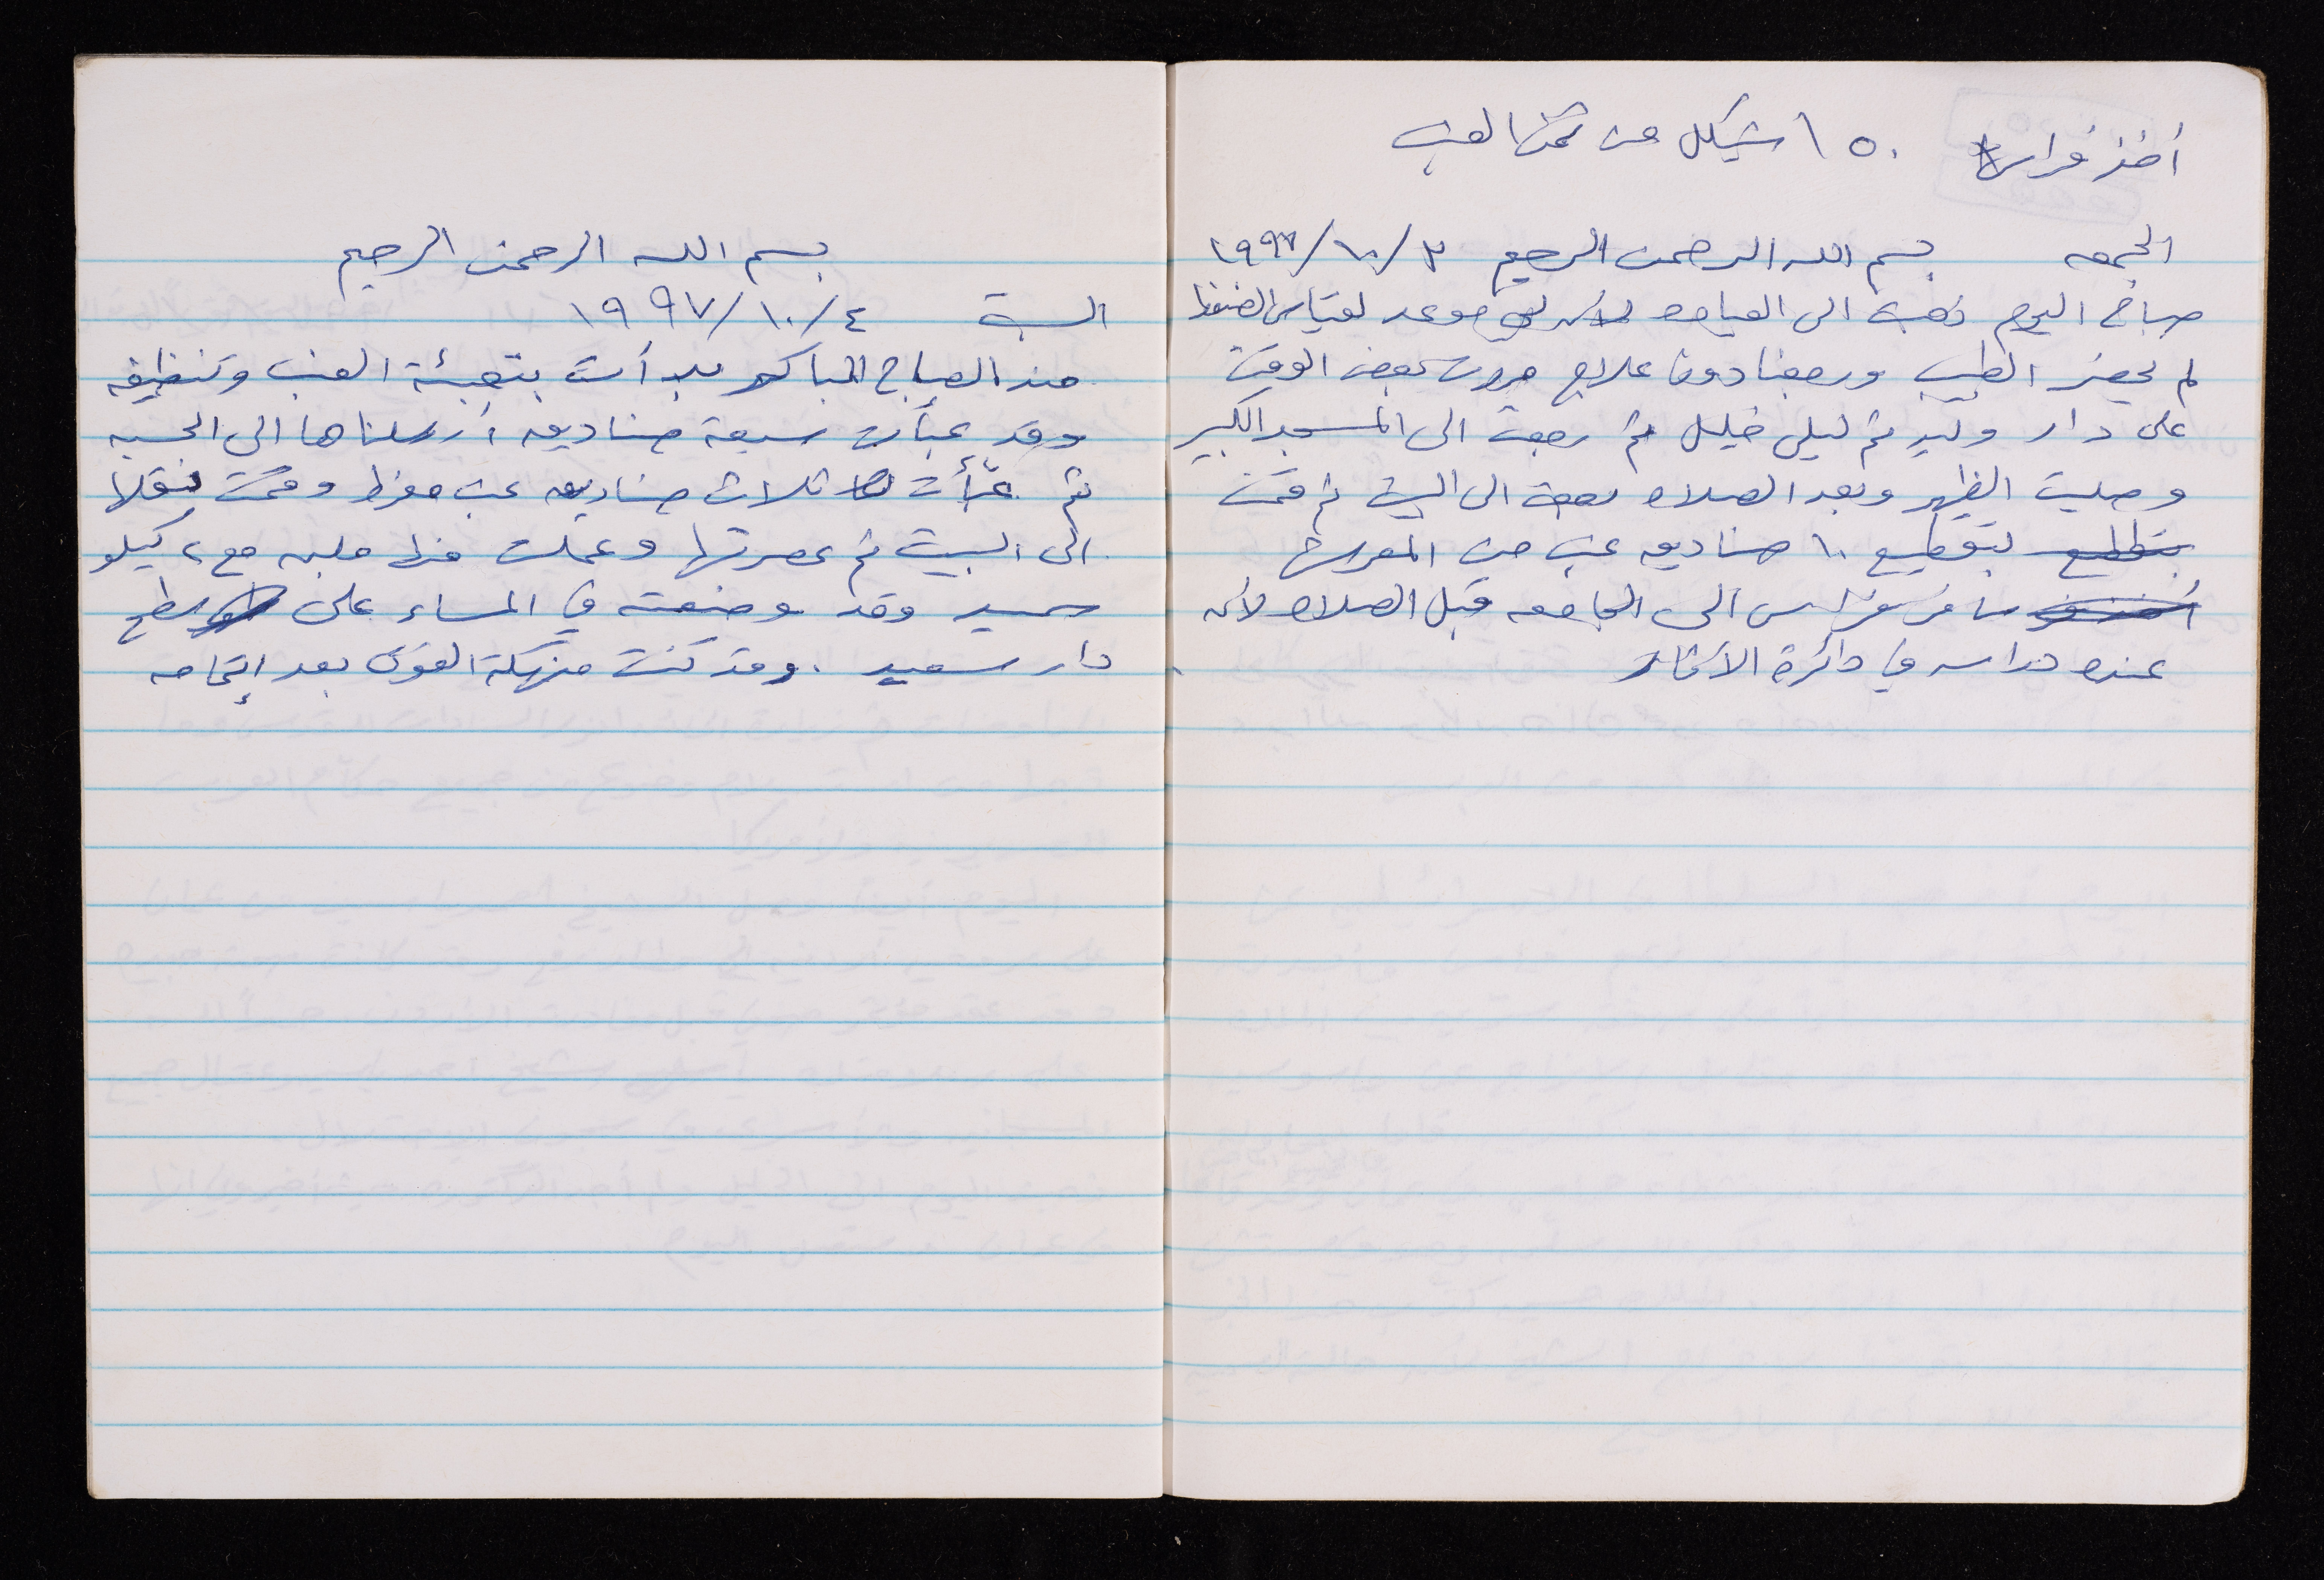 أخذ فراس ١٥٠ شيكل من ثمن العنب
الجمعه بسم الله الرحمن الرحيم ٣/١٠/١٩٩٧
صباح اليوم ذهبت الى العياده لأنه لي موعد لقياس الضغط
لم يحضر الطبيب ورجعنا دون علاج مررت بعض الوقت
على دار وليد ثم ليلى خليل ثم رجعت الى المسجد الكبير
وصليت الظهر وبعد الصلاه رجعت الى البيت ثم قمت
بتقطيع ١٠ صناديق عنب من المعرش
سافر فراس الى الجامعه قبل الصلاه لأنه
عنده دراسه في دائرة الآثار
بسم الله الرحمن الرحيم
السبت ٤/١٠/١٩٩٧
منذ الصباح الباكر بدأت بتعبئة العنب وتنظيفه
وقد عبأت سبعة صناديق أرسلناها الى الحسبه
ثم عبّأت ثلاث صناديق عنب مفرط وقمت بنقلها
الى البيت ثم عصرتها وعملت ملبن مع ٢ كيلو
سميد وقد وضعته في المساء على سطح
دار سعيد . وقد كنت منهكة القوى بعد إتمامه